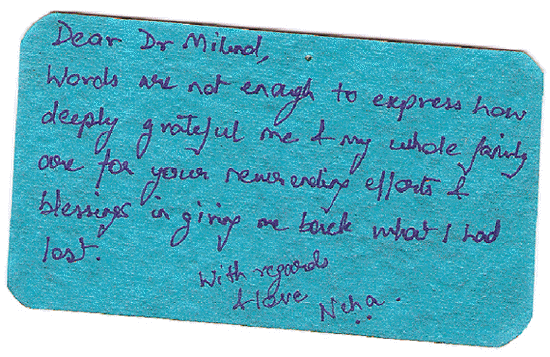 Dear Dr Milind,
Words are not enough to express how
deeply grateful me & my whole family
are for your neverending efforts &
blessings in giving me back what I had
lost.
With regards
& love Neha.